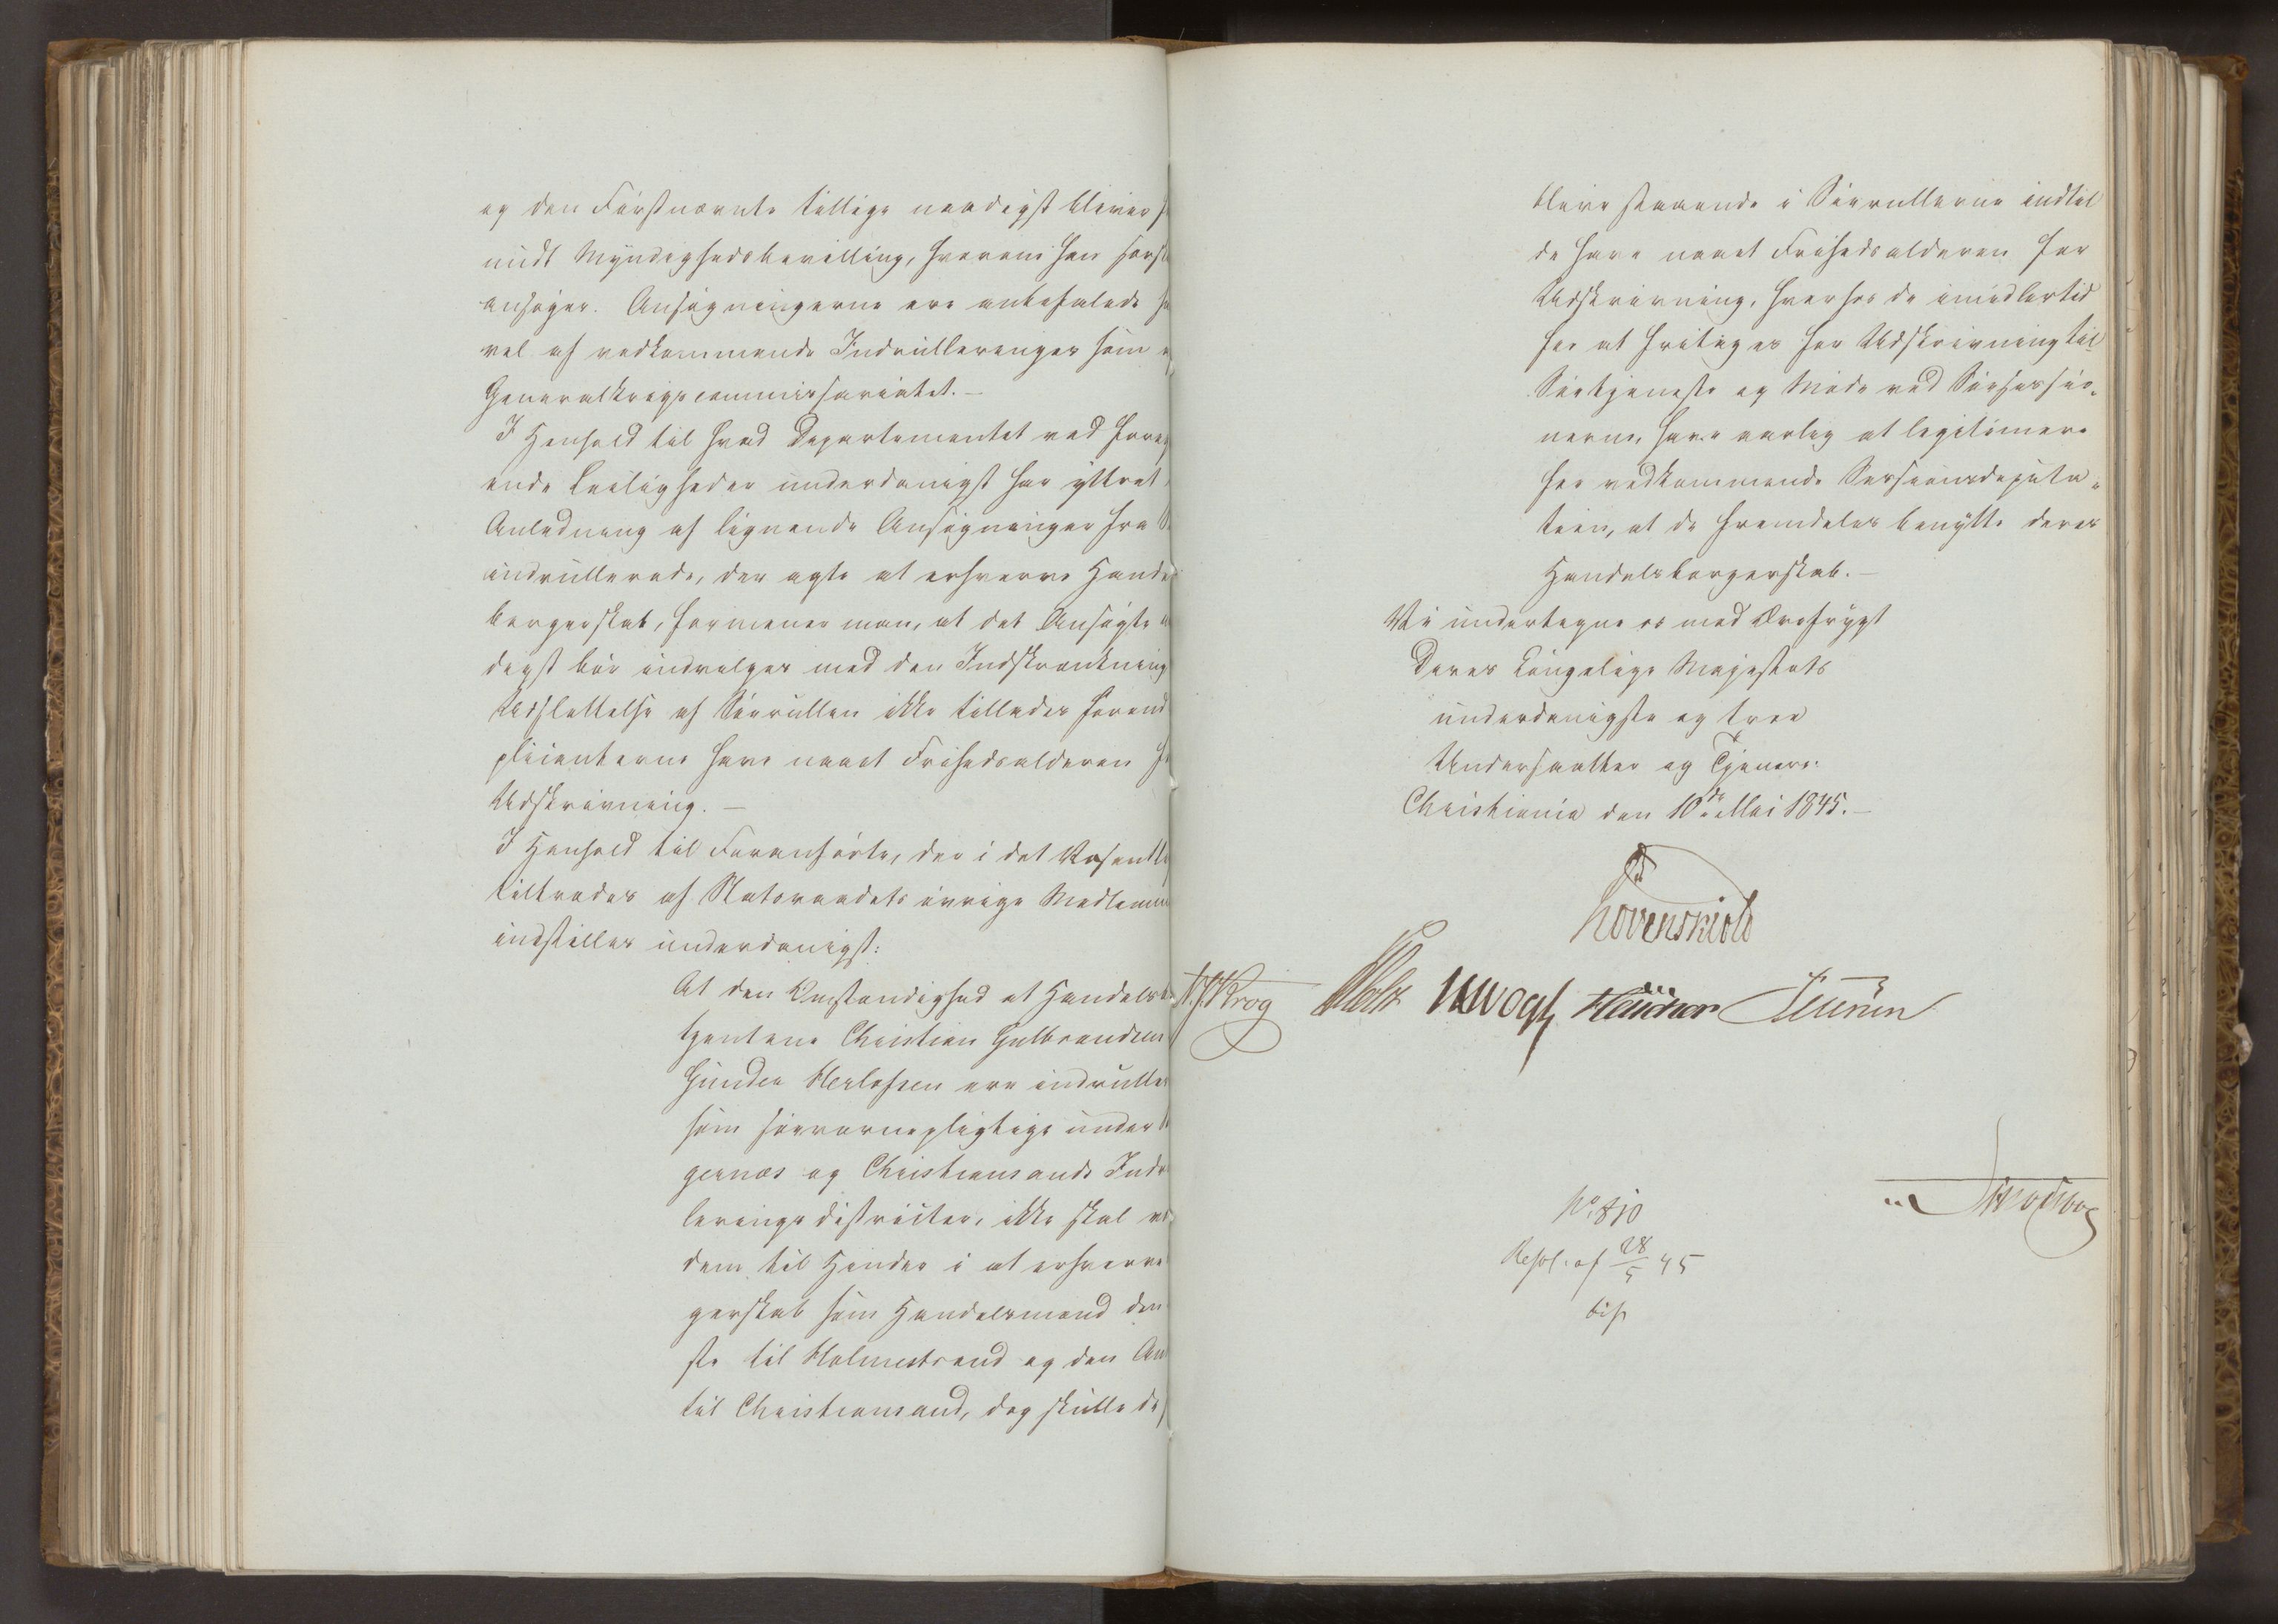 og den Førstnævnte tillige naadigst bliver
meddt Myndighedsbevilling, hvorom han
ansøger. Ansøgningerne ere anbefalede
vel af vedkommende Indrulleringer som
Generalkrigscommissariatet.-
I Henhold til hvad Departementet ved foreg
ende Leiligheder underdanigst har yttret
Anledning af lignende Ansøgninger fra
indrullerede, der agte at erhverve Handels
borgerskab, formener man, at det Ansøgte
digst bør indvilges med den Indskrænkning
Udslettelse af Søerullen ikke tillades forend
plicanterne have naaet Frihedsalderen
Udskrivning.-
I Henhold til Foranførte, der i det Væsentli
tiltrædes af Statsraadets øvrige Medlemm
indstilles underdanigst:
At den Omstændighed at Handels
tjentene Christian Gulbrandsen
Gunder Herlofsen ere indrulle
som søeværnepligtige under
gernæs og Christiansands Indr
lerings distriicter, ikke skal
dem til Hinder i at erhverve
gerskab som Handelsmand den
ste til Holmestrand og den An
til Christiansand, dog skulle de
blive staaende i Søerullerne indtil
de have naaet Frihedsalderen for
Udskrivning, hvorhos de imidlertid
for at fritages for Udskrivning til
Søetjeneste og Møde ved Søesessio-
nerne, have aarlig at legitimere
for vedkommende Sessionsdeputa-
tion, at de fremdeles benytte deres
Handelsborgerskab.-
Vi undertegne os med Ærefrygt
Deres Kongelige Majestæts
underdanigste og troe
Undersaatter og Tjenere.
Christiania den 10de Mai 1845.-
Løvenskiold
Krog Holst Vogt
No. 810
Resol. af 28/5 45
bif